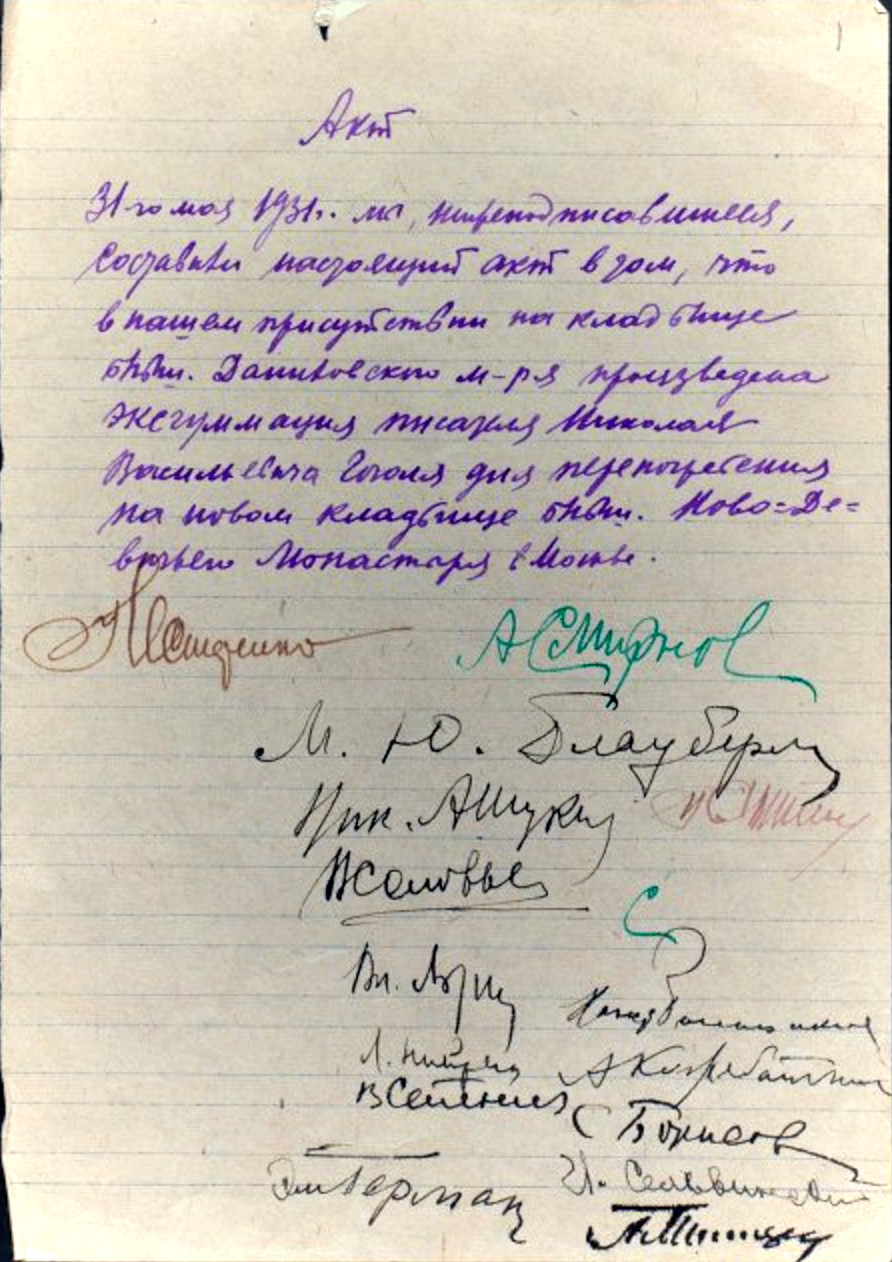 Акт
31-го мая 1931 г. мы, нижеподписавшиеся,
составили настоящий акт в том, что
в нашем присутствии на кладбище
бывш. Даниловского м-ря произведена
эксгуммация писателя Николая
Васильевича Гоголя для перепогребения
на новом кладбище бывш. Ново-Де-
вичьего Монастыря в Москве.
АСмирнов
М. Ю. Блауберг
Ник. Ашукин
ВСоловьев
Вл. Лидин
С Борисов
И. Сельвинский